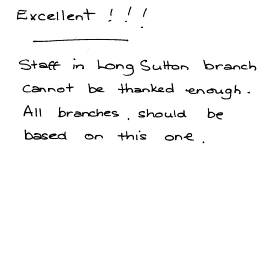 Excellent ! ! !
Staff in Long Sutton branch
cannot be thanked enough.
All branches. should be
based on this one.